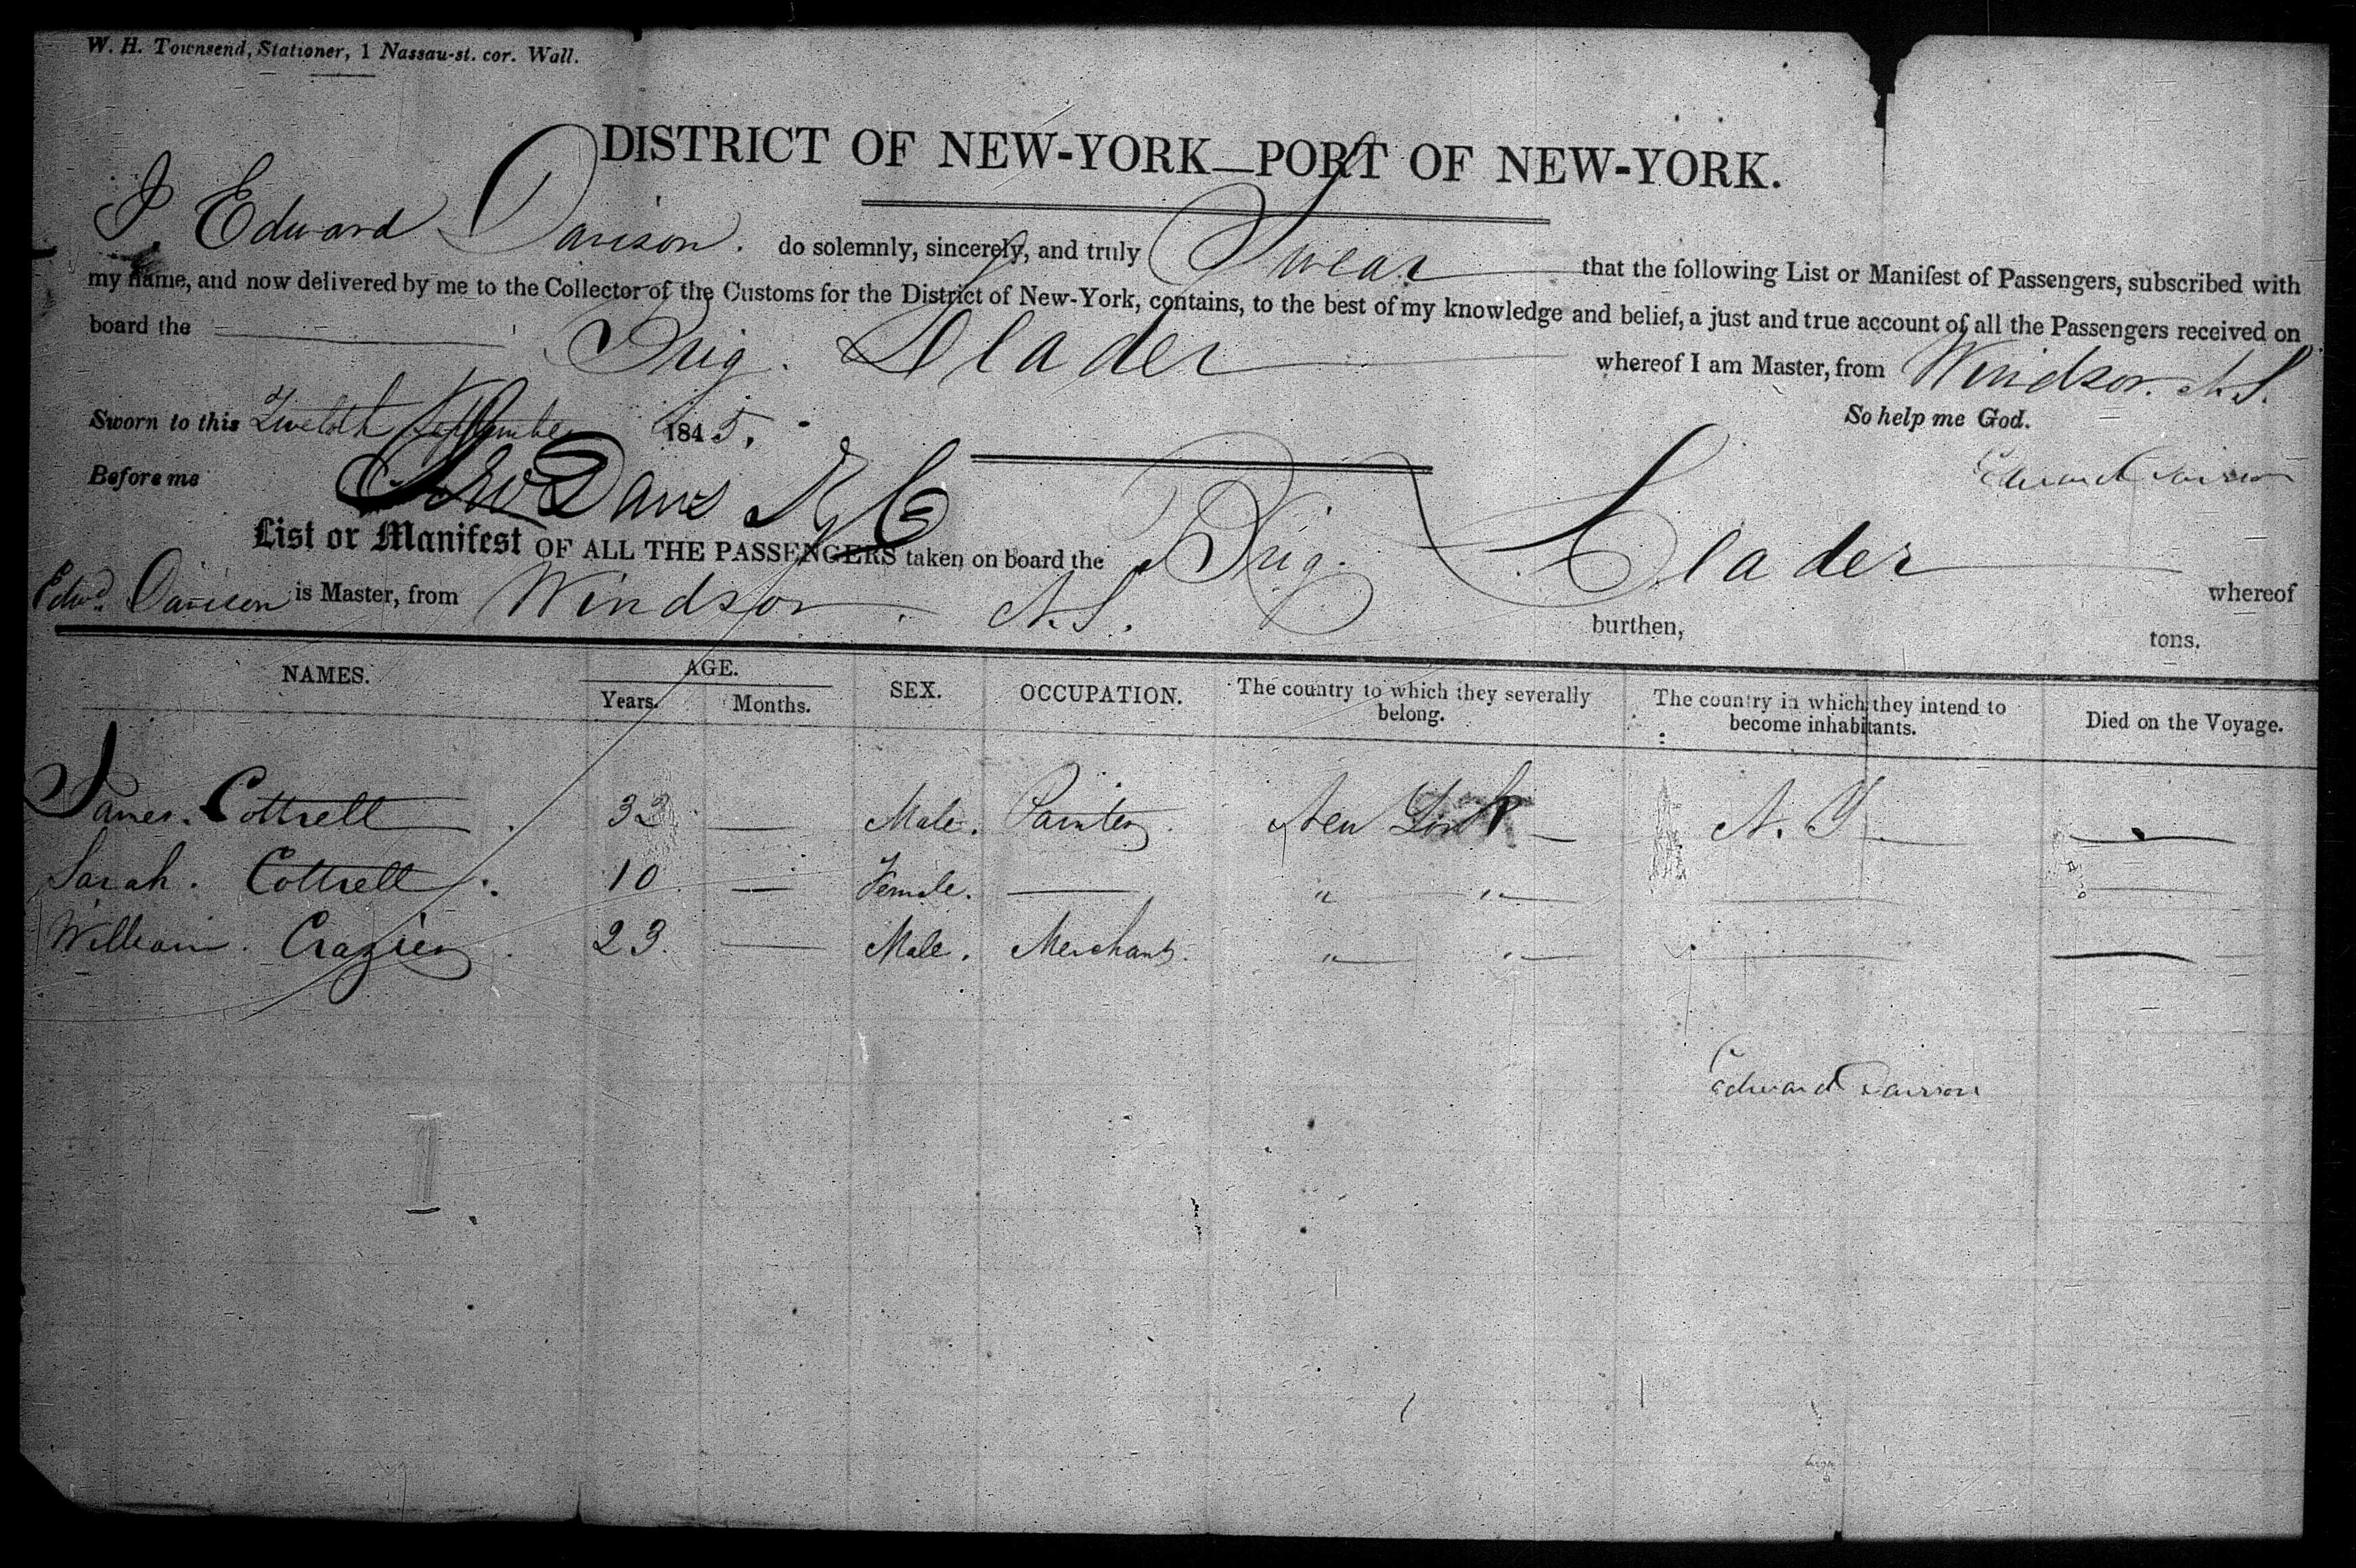 W. H. Townsend, Stationer, 1 Nassau-st. cor. Wall.
DISTRICT OF NEW-YORK—PORT OF NEW-YORK.
I, Edward Davison. do solemnly, sincerely, and truly Swear that the following List or Manifest of Passengers, subscribed with
my name, and now delivered by me to the Collector of the Customs for the District of New-York, contains, to the best of my knowledge and belief, a just and true account of all the Passengers received on
board the Brig. whereof I am Master, from Windsor. N.S.
Sworn to this Twelfth September 1845. So help me God.
Before me Davis Edward Davison
List or Manifest OF ALL THE PASSENGERS taken on board the Brig. whereof
Edwd. Davison is Master, from Windsor. N.S. burthen, tons.
NAMES. AGE. SEX. OCCUPATION. The country to which they severally belong. The country in which they intend to become inhabitants. Died on the Voyage.
Years. Months.
James. Cottrell 32 — Male. Painter. New York — N. Y — —
Sarah. Cottrell 10 — Female. — " — " — — —
William. Crazier 23. — Male. Merchant. " — " — — —
Edward Davison